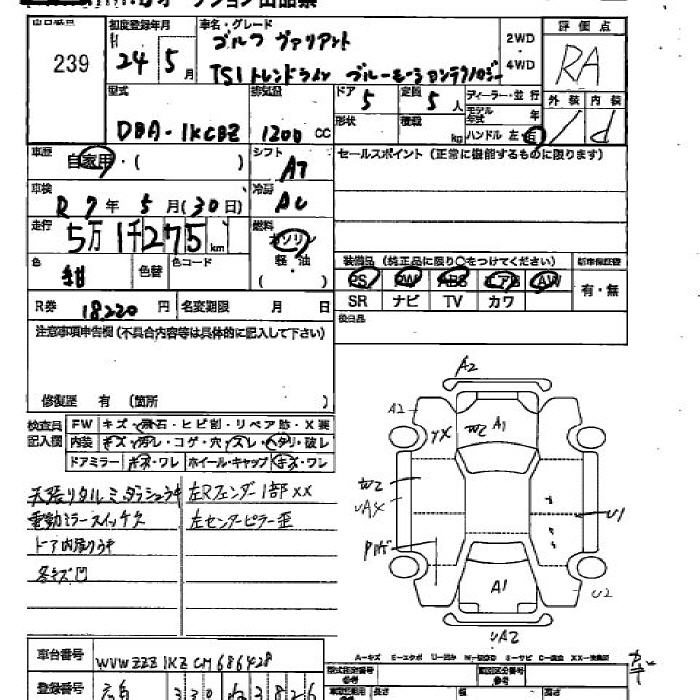 239
初度登録年月
H 24年 5月
車名・グレード
ゴルフ ヴァリアント
TSI トレンドライン ブルーモーションテクノロジー
2WD
4WD
評価点
RA
外装 内装
d
型式
DBA-1KCBZ
排気量
1200 cc
ドア 5
定員 5 人
形状
積載 kg
ディーラー・並行
モデル年式 年
ハンドル 左・右
車歴
自家用・( )
シフト
AT
セールスポイント (正常に機能するものに限ります)
車検
R7年 5月(30日)
冷房
AC
走行
5万1千275 km
燃料
ガソリン
軽・油
( )
色
紺
色替
色コード
装備品 (純正品に限り○をつけてください)
PS PW ABS エアB AW
SR ナビ TV カワ
新車保証書
有・無
R券 18220 円
名変期限 月 日
後日品
注意事項申告欄 (不具合内容等は具体的に記入して下さい)
修復歴 有 (箇所 )
検査員記入欄
FW キズ・飛石・ヒビ割・リペア跡・X要
内装 キズ・汚レ・コゲ・穴・スレ・ヘタリ・破レ
ドアミラー キズ・ワレ ホイール・キャップ キズ・ワレ
左Rフェンダー1部XX
電動ミラースイッチ欠
左センターピラー歪
ドア内張ウキ
各キズ凹
A2
A2
YX
W2
A1
W2
UAX
U1
A1
U2
UA2
車台番号
WVWZZZ1KZCM686428
登録番号
330
3826
型式指定番号
類別区分番号
長さ
幅
高さ